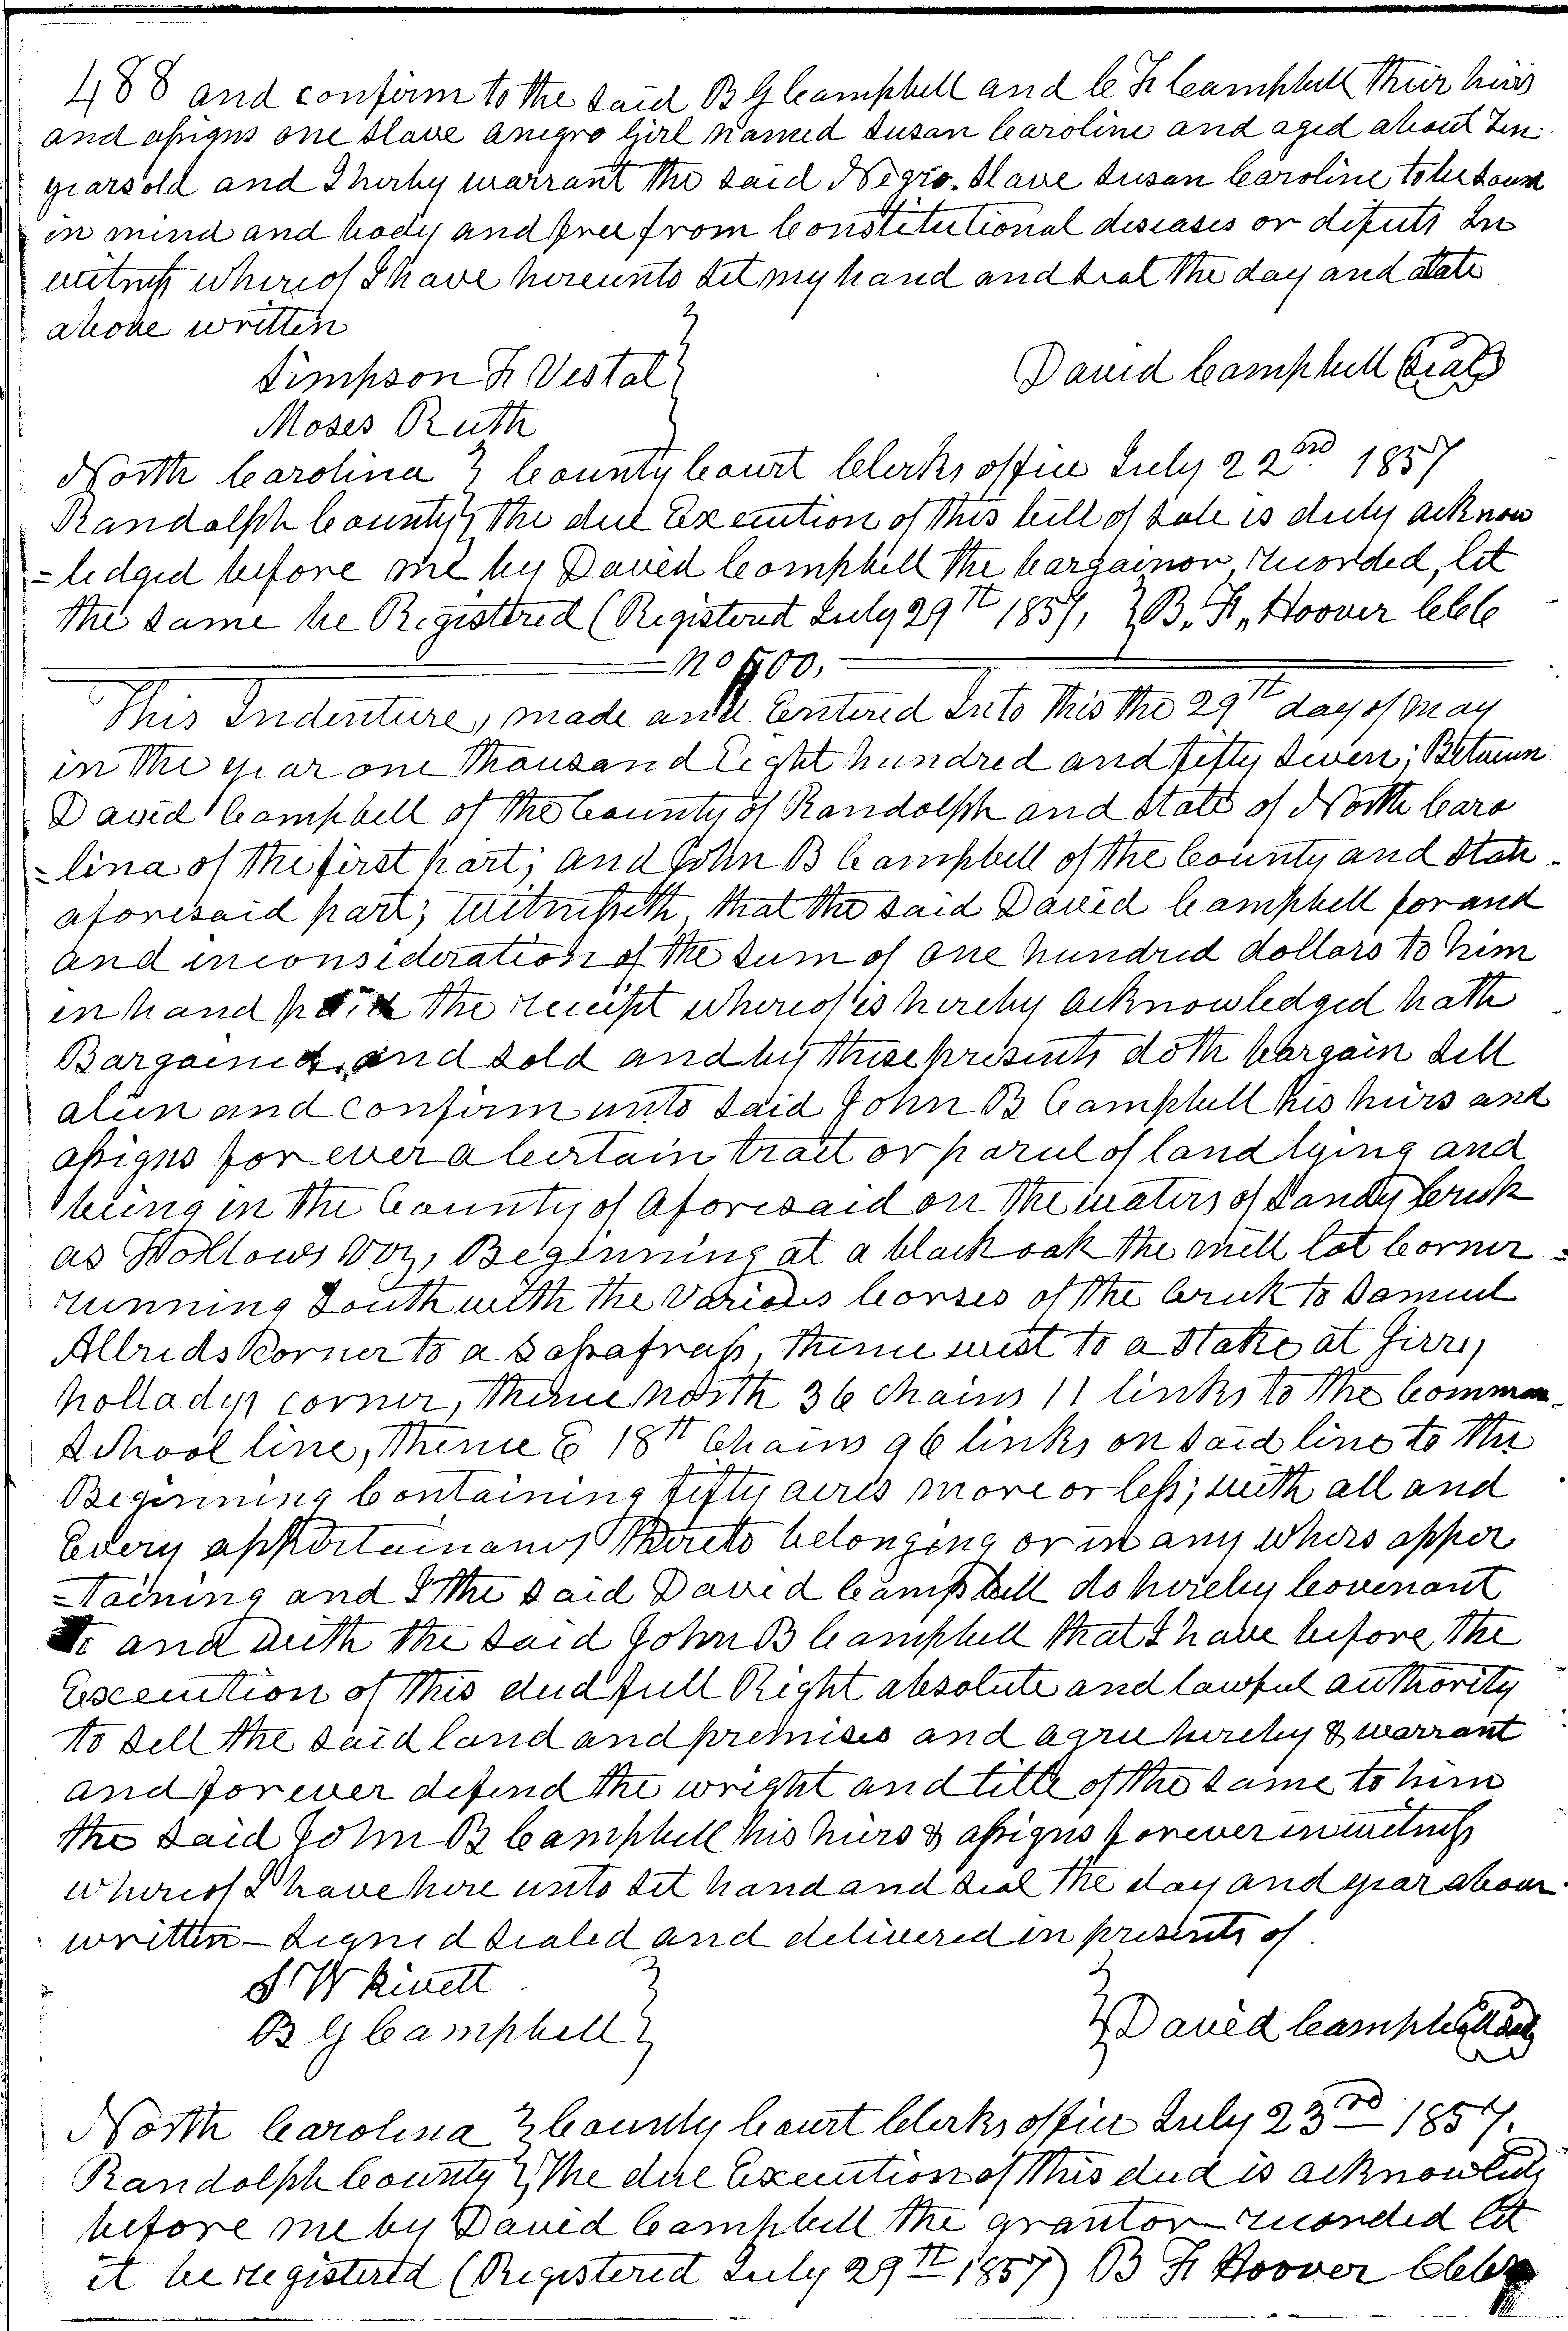 488 and confirm to the said B G Campbell and C F Campbell their heirs
and assigns one slave a negro Girl named Susan Caroline and aged about Ten
years old and I herby warrant the said Negro. Slave Susan Caroline to be sound
in mind and body and free from Constitutional diseases or defects In
witness whereof I have hereunto set my hand and seal the day and date
above written
Simpson F Vestal
David Campbell (Seal)
Moses Ruth
North Carolina } County Court Clerks office July 22nd 1857
Randolph County } The due Execution of this bill of sale is duly acknow
=ledged before me by David Campbell the bargainor, recorded, let
the same be Registered (Registered July 29th 1857, } B. F. Hoover CCC
No 500.
This Indenture, made and Entered Into this the 29th day of may
in the year one thousand Eight hundred and fifty seven; Between
David Campbell of the County of Randolph and State of North Caro
=lina of the first part; and John B Campbell of the County and State
aforesaid part; witnesseth, that the said David Campbell for and
and in consideration of the sum of one hundred dollars to him
in hand paid the receipt whereof is hereby acknowledged hath
Bargained and sold and by these presents doth bargain sell
alien and confirm unto said John B Campbell his heirs and
assigns for ever a certain tract or parcel of land lying and
being in the County of Aforesaid on the waters of Sandy Creek
as Hollows Viz, Beginning at a black oak the mill lot Corner
running South with the Various Corses of the Creek to Samuel
Allreds Corner to a Sassafrass, thence west to a Stake at Jirry
holladys corner, thence north 36 chains 11 links to the Common
School line, thence E 18th Chains 96 links on said line to the
Beginning Containing fifty acres more or less; with all and
Every appertainances thereto belonging or in any whers apper
=taining and I the said David Campbell do hereby Covenant
to and with the said John B Campbell that I have before the
Execution of this deed full Right absolute and lawful authority
to sell the said land and premises and agree hereby & warrant
and forever defend the wright and title of the same to him
the said John B Campbell his heirs & assigns forever in witness
whereof I have here unto set hand and seal the day and year above
written - Signed sealed and delivered in presents of
S W Kivett
B G Campbell
David Campbell (Seal)
North Carolina } County Court Clerks office July 23rd 1857.
Randolph County } The due Execution of this deed is acknowledg
before me by David Campbell the grantor recorded let
it be registered (Registered July 29th 1857) B F Hoover CCC